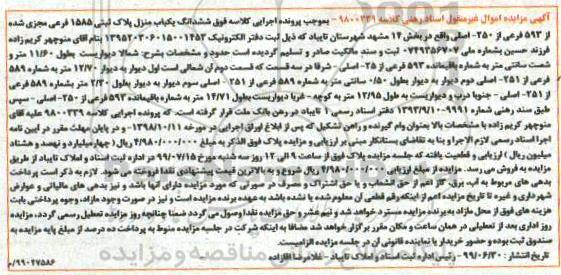 آگهی مزایده اموال غیرمنقول اسناد رهنی کلاسه ۹۸۰۰۳۳۹- بموجب پرونده اجرایی کلاسه فوق ششدانگ یکباب منزل پلاک ثبتی ۱۵۸۵ فرعی مجزی شده
از ۵۹۳ فرعی از ۲۵۰- اصلی واقع در بخش ۱۴ مشهد شهرستان تایباد که ذیل ثبت دفتر الکترونیک ۱۳۹۵۲۰۳۰۶۰۱۵۰۰۱۴۵۳ بنام آقای منوچهر کریم زاده
فرزند حسین بشماره ملی ۰۷۴۹۳۵۶۷۰۷ ثبت و سند مالکیت صادر و تسلیم گردیده است حدود و مشخصات بشرح: شمالا دیواریست بطول ۱۱/۶۰ متر و
شصت سانتی متر به شماره باقیمانده ۵۹۳ فرعی از ۲۵- اصلی - شرقا در سه قسمت که قسمت دوم آن شمالی است اول دیوار به دیوار ۱۲/۷۰ متر به شماره ۵۸۹
فرعی از ۲۵۱- اصلی دوم دیوار به دیوار بطول ۰/۵۰ سانتی متر به شماره ۵۸۹ فرعی از ۲۵۱- اصلی سوم دیوار به دیوار بطول ۲/۳۰ متر بشماره ۵۸۹ فرعی
از ۲۵۱- اصلی - جنوبا درب و دیواریست به طول ۱۲/۹۵ متر به کوچه - غربا دیواریست بطول ۱۴/۷۱ متر به شماره باقیمانده ۵۹۳ فرعی از ۲۵۰- اصلی - سپس
طبق سند رهنی شماره ۹۹۹۱-۱۳۹۳/۹/۱۰ دفتر اسناد رسمی ۱ تایباد در رهن بانک ملت قرار گرفته است. که پرونده اجرایی کلاسه ۹۸۰۰۳۳۹ علیه آقای
منوچهر کریم زاده با مشخصات بالا بعنوان وام گیرنده و راهن تشکیل که پس از ابلاغ اوراق اجرایی در مورخه ۱۳۹۸/۱۰/۱۱- و در پایان مهلت مقرر در آیین نامه
اجرا اسناد رسمی لازم الاجرا و بنا به تقاضای بستانکار مبنی بر ارزیابی و مزایده پلاک فوق الذکر به مبلغ ۴/۹۸۰/۰۰۰/۰۰۰ ریال (چهار میلیارد و نهصد و هشتاد
میلیون ریال) ارزیابی و قطعیت یافته که جلسه مزایده پلاک فوق از ساعت ۹ الی ۱۲ روز سه شنبه مورخ ۹۹/۰۷/۱۵ در اداره ثبت اسناد و املاک تایباد از طریق
مزایده به فروش می رسد. مزایده از مبلغ ارزیابی ۴/۹۸۰/۰۰۰/۰۰۰ ریال شروع و به بالاترین قیمت پیشنهادی نقدا فروخت می شود. لازم به ذکر است پرداخت
بدهی های مربوط به آب، برق، گاز اعم از حق انشعاب و یا حق اشتراک و مصرف در صورتی که مورد مزایده دارای آنها باشد و نیز بدهی های مالیاتی و عوارض
شهرداری و غیره تا تاریخ مزایده اعم از اینکه رقم قطعی آن معلوم شده یا نشده باشد به عهده برنده مزایده است و نیز در صورت وجود مازاد، وجوه پرداختی بابت
هزینه های فوق از محل مازاد به برنده مزایده مسترد خواهد شد و نیم عشر و حق مزایده نقدا وصول می گردد ضمنا چنانچه روز مزایده تعطیل رسمی گردد، مزایده
روز اداری بعد از تعطیلی در همان ساعت و مکان مقرر برگزار خواهد شد مضافا به اینکه شرکت در جلسه مزایده منوط به پرداخت ده درصد از مبلغ پایه مزایده به
صندوق ثبت بوده و حضور خریدار یا نماینده قانونی آن در جلسه مزایده الزامیست.
تاریخ انتشار: ۹۹/۰۶/۳۰- رئیس اداره ثبت اسناد و املاک تایباد - غلامرضا آقازاده
۹۹۰۲۷۵۸۶/م